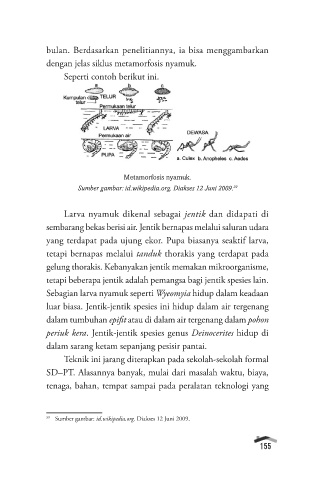 bulan. Berdasarkan penelitiannya, ia bisa menggambarkan
dengan jelas siklus metamorfosis nyamuk.
Seperti contoh berikut ini.
a b c
Kumpulan telur
TELUR
Permukaan telur
LARVA
Permukaan air
PUPA
DEWASA
a. Culex b. Anopheles c. Aedes
Metamorfosis nyamuk.
Sumber gambar: id.wikipedia.org. Diakses 12 Juni 2009.
Larva nyamuk dikenal sebagai jentik dan didapati di
sembarang bekas berisi air. Jentik bernapas melalui saluran udara
yang terdapat pada ujung ekor. Pupa biasanya seaktif larva,
tetapi bernapas melalui tanduk thorakis yang terdapat pada
gelung thorakis. Kebanyakan jentik memakan mikroorganisme,
tetapi beberapa jentik adalah pemangsa bagi jentik spesies lain.
Sebagian larva nyamuk seperti Wyeomyia hidup dalam keadaan
luar biasa. Jentik-jentik spesies ini hidup dalam air tergenang
dalam tumbuhan epifit atau di dalam air tergenang dalam pohon
periuk kera. Jentik-jentik spesies genus Deinocerites hidup di
dalam sarang ketam sepanjang pesisir pantai.
Teknik ini jarang diterapkan pada sekolah-sekolah formal
SD–PT. Alasannya banyak, mulai dari masalah waktu, biaya,
tenaga, bahan, tempat sampai pada peralatan teknologi yang
Sumber gambar: id.wikipedia.org. Diakses 12 Juni 2009.
155